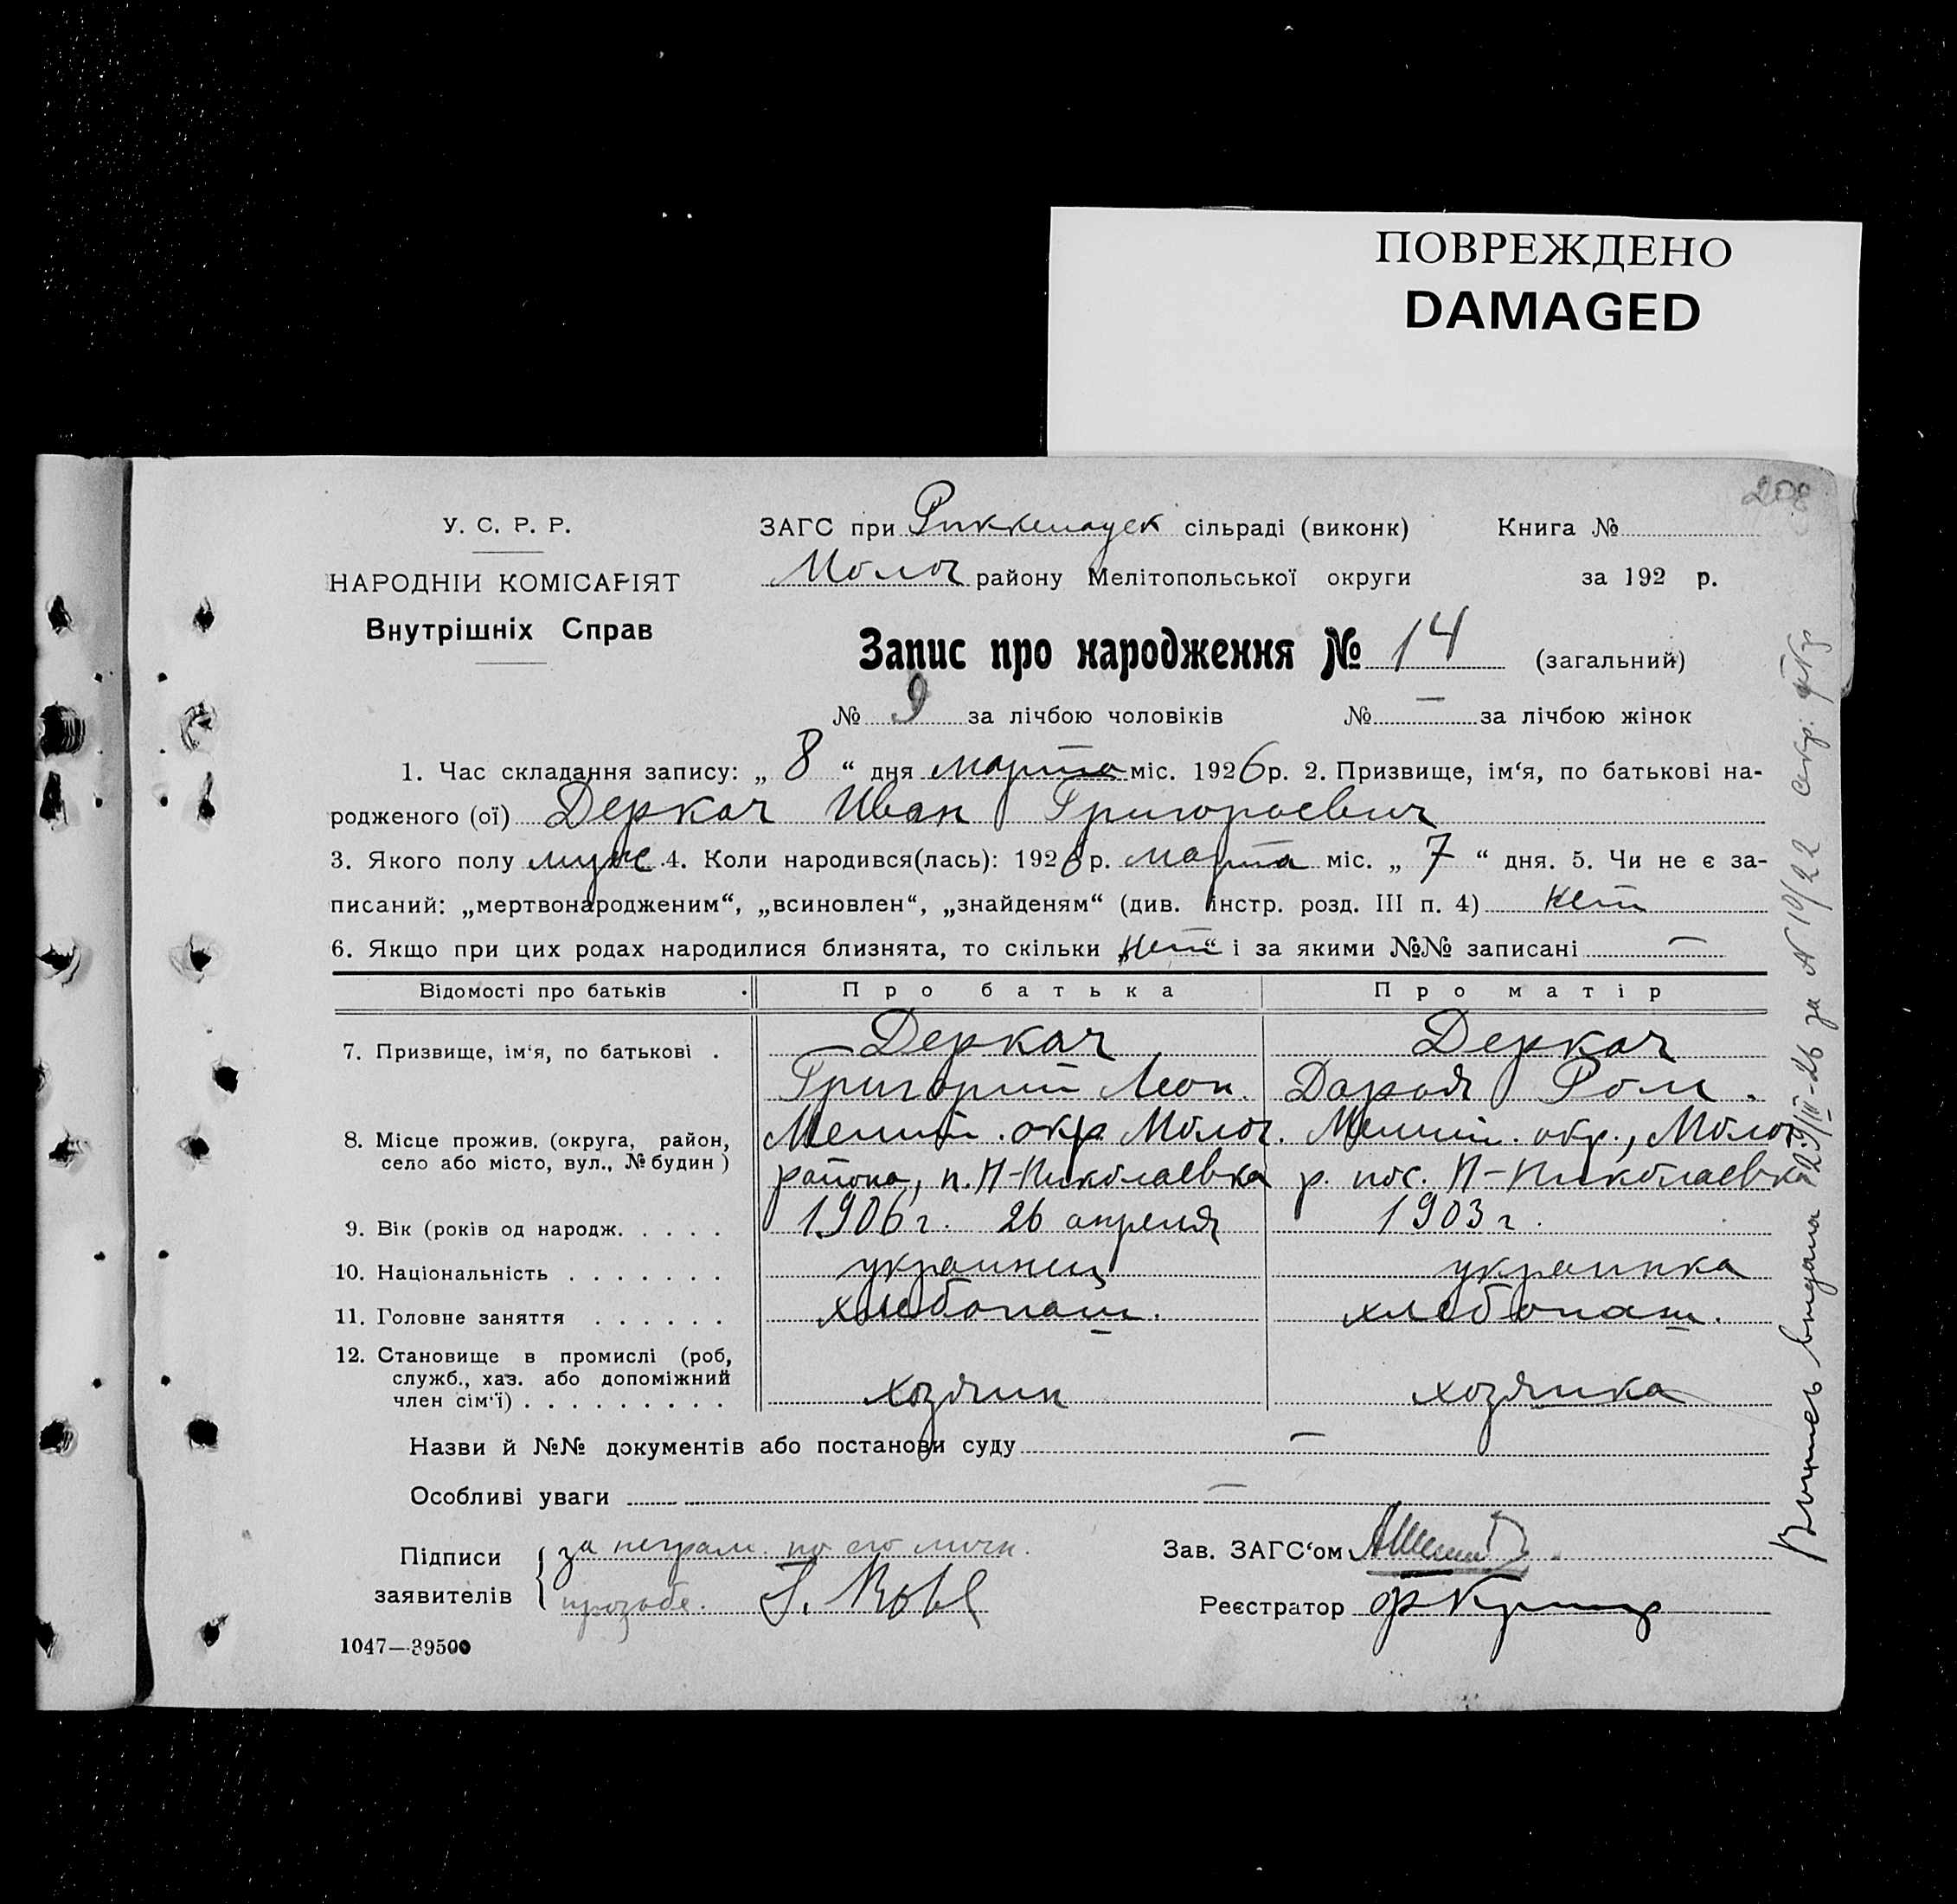 ПОВРЕЖДЕНО
DAMAGED
208
У. С. Р. Р.
НАРОДНІЙ КОМІСАРІЯТ
Внутрішніх Справ
ЗАГС при Риккенауск сільраді (виконк) Книга №
Молоч району Мелітопольської округи за 192 р.
Запис про народження № 14 (загальний)
№ 9 за лічбою чоловіків № — за лічбою жінок
1. Час складання запису: „ 8 “ дня марта міс. 1926 р. 2. Призвище, ім‘я, по батькові на-
родженого (ої) Деркач Иван Григорьевич
3. Якого полу муж 4. Коли народився(лась): 1926 р. марта міс. „ 7 “ дня. 5. Чи не є за-
писаний: „мертвонародженим“, „всиновлен“, „знайденям“ (див. інстр. розд. III п. 4) нет
6. Якщо при цих родах народилися близнята, то скільки „нет“ і за якими №№ записані —
Відомості про батьків Про батька Про матір
7. Призвище, ім‘я, по батькові . Деркач Деркач
Григорий Леон. Дарья Ром.
8. Місце прожив. (округа, район, Мелит. окр Молоч. Мелит. окр., Молоч.
село або місто, вул., № будин) района, п. Н-Николаевка р. пос. Н-Николаевка
9. Вік (років од народж. . . . . 1906 г. 26 апреля 1903 г.
10. Національність . . . . . . . украинец украинка
11. Головне заняття . . . . . . хлебопаш. хлебопаш.
12. Становище в промислі (роб,
служб., хаз. або допоміжний
член сім‘ї) . . . . . . . . . хозяин хозяйка
Назви й №№ документів або постанови суду —
Особливі уваги —
Підписи за неграм. по его личн. Зав. ЗАГС‘ом
заявителів прозьбе. Реєстратор
1047—39500
Выпись выдана 29/III-26 за № 10/22